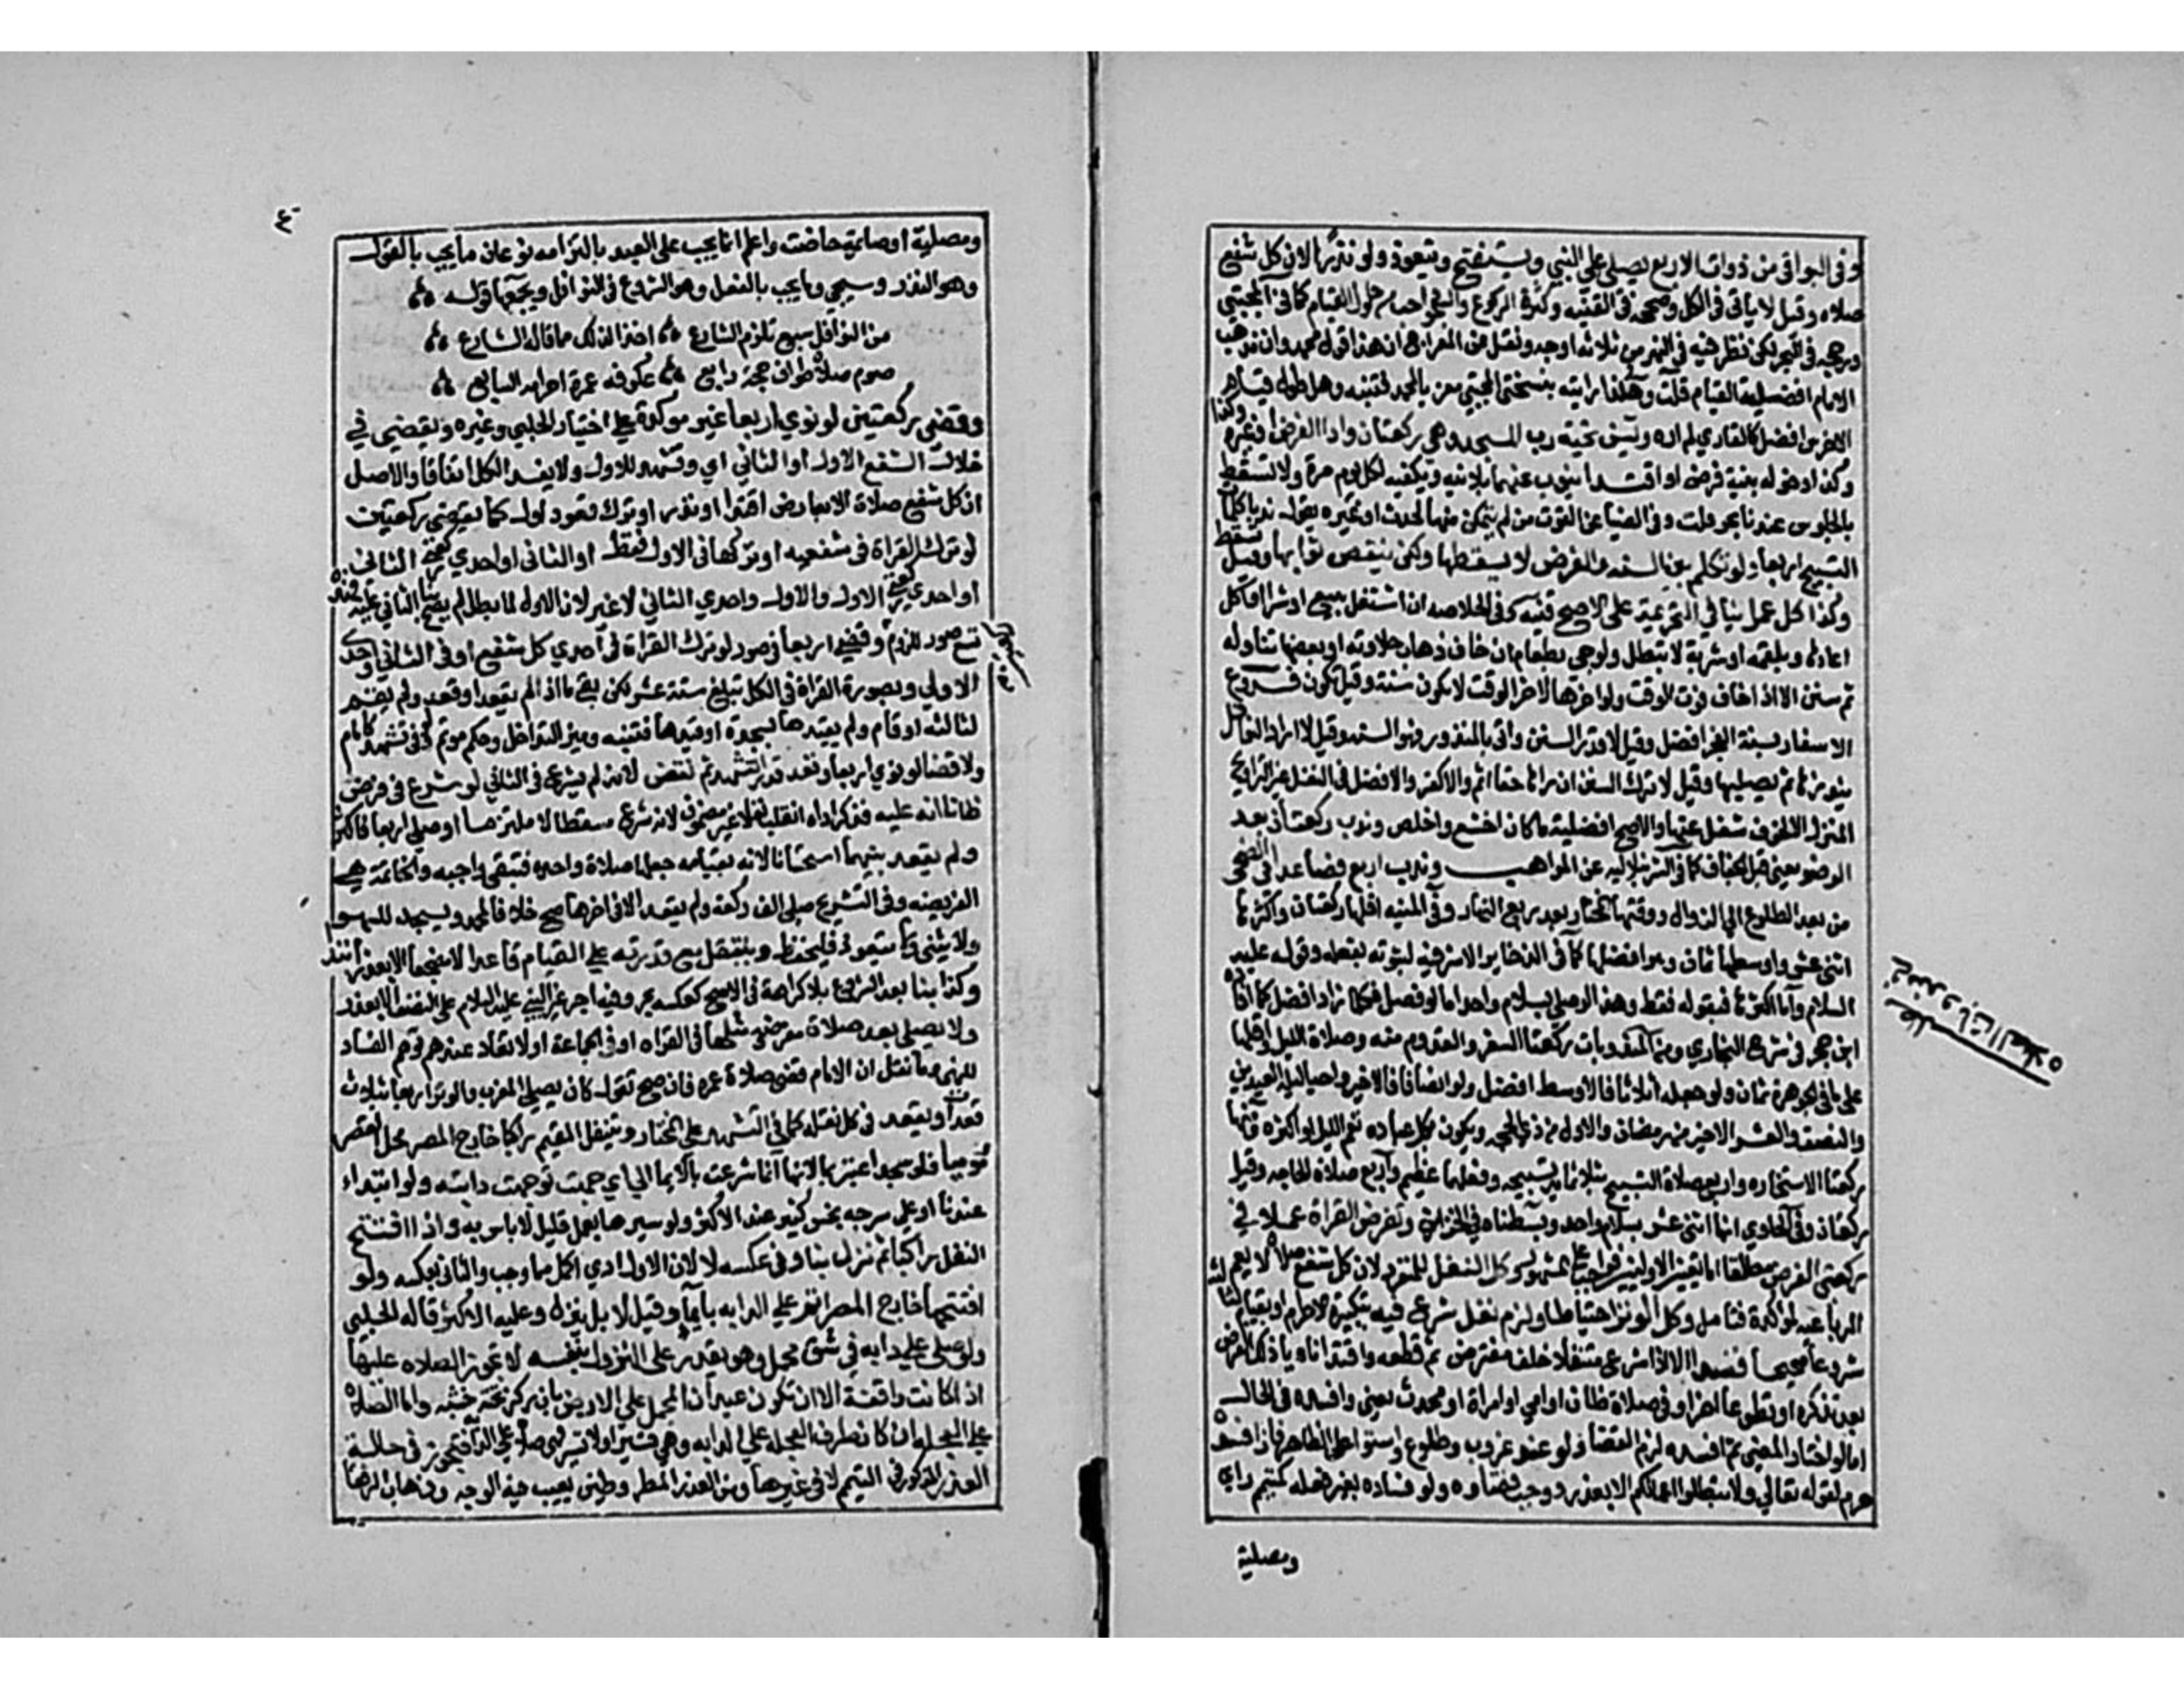 وفى البواقى من ذوات الاربع يصلى على النبي ويستفتح ويتعوذ ولو نذرا لان كل شفع
صلاه وقيل لا ياتى فى الكل وصححه فى القنيه وكثرة الركوع والسجود احب من طول القيام كما فى المجتبي
ورجحه فى البحر لكن نظر فيه فى النهر من ثلاثه اوجه ونقل عن المعراج ان هذا قول محمد وان مذهب
الامام افضلية القيام قلت وهكذا رايته بنسختى المجتبي معزيا لمحمد فتنبه وهل طول قيام
الاخرس افضل كالقاري لم اره ويسن تحية رب المسجد وهى ركعتان واداء الفرض او غيره
وكذا دخوله بنية فرض او اقتدا ينوب عنها بلا نيه وتكفيه لكل يوم مرة ولا تسقط
بالجلوس عندنا بحر قلت وفى الضيا عن القوت من لم يتمكن منها لحدث او غيره يقول ندبا كلمات
التسبيح اربعا ولو تكلم بين السنه والفرض لا يسقطها ولكن ينقص ثوابها وقيل تسقط
وكذا كل عمل ينافي التحريمة على الاصح قنيه وفى الخلاصه ان اشتغل ببيع او شرا او اكل
اعادها وبلقمه او شربة لا تبطل ولو جى بطعام ان خاف ذهاب حلاوته او بعضها تناوله
ثم سنن الا اذا خاف فوت الوقت ولو اخرها لاخر الوقت لا يكون سنة وقيل تكون فروع
الاسفار بسنة الفجر افضل وقيل لا نذر السنن واتى بالمنذور وفهو السنه وقيل لا اراد النوافل
ينذرها ثم يصليها وقيل لا ترك السنن ان راها حقا اثم والا كفر والافضل فى النفل غير التراويح
المنزل الا لخوف شغل عنها والاصح افضلية ما كان اخشع واخلص وندب ركعتان بعد
الوضو يعنى قبل الجفاف كما فى الشرنبلاليه عن المواهب وندب اربع فصاعدا فى الضحى
من بعد الطلوع الى الزوال ووقتها المختار بعد ربع النهار وفى المنيه اقلها ركعتان واكثرها
اثنى عشر واوسطها ثمان وهو افضلها كما فى الذخاير الاشرفيه لثبوته بفعله وقوله عليه
السلام واما اكثرها فبقوله فقط وهذا لو صلى بسلام واحد اما لو فصل فكلما زاد افضل كما افاده
ابن حجر فى شرح البخاري ومن المندوبات ركعتا السفر والقدوم منه وصلاة الليل واقلها
على ما فى الجوهرة ثمان ولو جعله اثلاثا فالاوسط افضل ولو انصافا فالاخير واحيا ليلة العيدين
والنصف والعشر الاخير من رمضان والاول من ذى الحجه ويكون بكل عباده تعم الليل او اكثره ومنها
ركعتا الاستخاره واربع صلاة التسبيح بثلاثمايه تسبيحه وفضلها عظيم واربع صلاة للحاجه وقيل
ركعتان وفى الحاوي انها اثنى عشر بسلام واحد وبسطناه فى الخزاين وتفرض القراة عملا في
ركعتى الفرض مطلقا اما تعيين الاوليين فواجب على المشهور وكل النفل للمنفرد لان كل شفع صلاة لا يعم
الرباعيه المؤكدة فتامل وكل الوتر احتياطا ولزم نفل شرع فيه بتكبيرة الاحرام او بقيام لثالثة
شروعا صحيحا قصدا الا اذا شرع متنفلا خلف مفترض ثم قطعه واقتدا ناويا ذلك الفرض
بعد تذكره او تطوعا اخر او فى صلاة ظان او امي او امراة او محدث يعنى وافسده فى الحال
اما لو اختار المضى ثم افسده لزم القضا ولو عند غروب وطلوع واستوا على الظاهر فان افسده
حرم لقوله تعالى ولا تبطلوا اعمالكم الا بعذر ووجب قضاوه ولو فساده بغير فعله كمتيمم راى
ومصلية
مطلب
فى مندوبات الصلاه
ومصلية او صايمة حاضت واعلم ان ما يجب على العبد بالتزامه نوعان ما يجب بالقول
وهو النذر وسيجي وما يجب بالفعل وهو الشروع فى النوافل ويجمعها قوله
من النوافل سبع تلزم الشارع اخذا لذلك مما قاله الشارع
صوم صلاة طواف حجة رابع عكوفه عمرة احرامه السابع
وقضى ركعتين لو نوي اربعا غير موكدة على اختيار الحلبي وغيره ونقض في
خلال الشفع الاول او الثاني اي وتشهد للاول ولا يفسد الكل اتفاقا والاصل
ان كل شفع صلاة الا بعارض اقتدا او نذر او ترك قعود اول كما يقضى ركعتين
لو ترك القراة فى شفعيه او تركها فى الاول فقط او الثانى او احدي ركعتى الثانى
او احدي ركعتى الاول والاول واحدي الثاني لا غير لان الاول لما بطل لم يصح بنا الثانى عليه فهذه
تسع صور للزوم وقضى اربعا فى صور لو ترك القراة فى احدي كل شفع او فى الثانى واحدى
الاولي وبصورة القراة فى الكل تبلغ ستة عشر لكن بقى ما اذا لم يقعد او قعد ولم يقم
لثالثه او قام ولم يقيدها بسجدة او قيدها فتنبه وميز التداخل وحكم موتم ولو فى تشهد كامام
ولا قضا لو نوي اربعا وقعد قدر التشهد ثم نقض لانه لم يشرع فى الثانى او شرع فى فرض
ظانا انه عليه فذكر اداه انقلب نفلا غير مضمون لانه شرع مسقطا لا ملتزما او صلى اربعا فاكثر
ولم يقعد بينهما استحسانا لانه بقيامه جعلها صلاة واحده فتبقى واجبه والخاتمة هى
الفريضه وفى التشريح صلى الف ركعة ولم يقعد الا فى اخرها صح خلافا لمحمد ويسجد للسهو
ولا يثنى ولا يتعوذ فليحفظ ويتنفل مع قدرته على القيام قاعدا لا مضجعا الا بعذر ابتدا
وكذا بنا بعد الشروع بلا كراهة فى الاصح كعكسه بحر وفيه اجر غير النبي عليه السلام على النصف الا بعذر
ولا يصلى بعد صلاة مفروضة مثلها فى القراه او فى الجماعة او لا تعاد عند توهم الفساد
للنهى وما نقل ان الامام قضى صلاة عمره فان صح نقول كان يصلى المغرب والوتر اربعا بثلاث
قعدات ويقعد فى كل نفله كما فى التشهد على المختار ويتنفل المقيم راكبا خارج المصر محل القصر
موميا فلو سجد اعتبر ايما لانها انما شرعت بالايما الى اي جهت توجهت دابته ولو ابتداء
عندنا او على سرجه نجس كثير عند الاكثر ولو سيرها بعمل قليل لا باس به واذا افتتح
النفل راكبا ثم نزل بنا وفى عكسه لا لان الاول ادي اكمل مما وجب والثانى بعكسه ولو
افتتحها خارج المصر ثم دخل المصر اتم على الدابه بايما وقيل لا بل ينزل وعليه الاكثر قاله الحلبي
ولو صلى على دابه في شق محمل وهو يقدر على النزول بنفسه لا تجوز الصلاه عليها
اذا كانت واقفة الا ان تكون عيدان المحمل على الارض بان ركز تحته خشبه واما الصلاة
على العجله ان كان طرف العجله على الدابه وهي تسير او لا تسير فهى صلاة على الدابه فتجوز فى حالة
العذر المذكور فى التيمم لا فى غيرها ومن العذر المطر وطين يغيب فيه الوجه وذهاب الرفقا